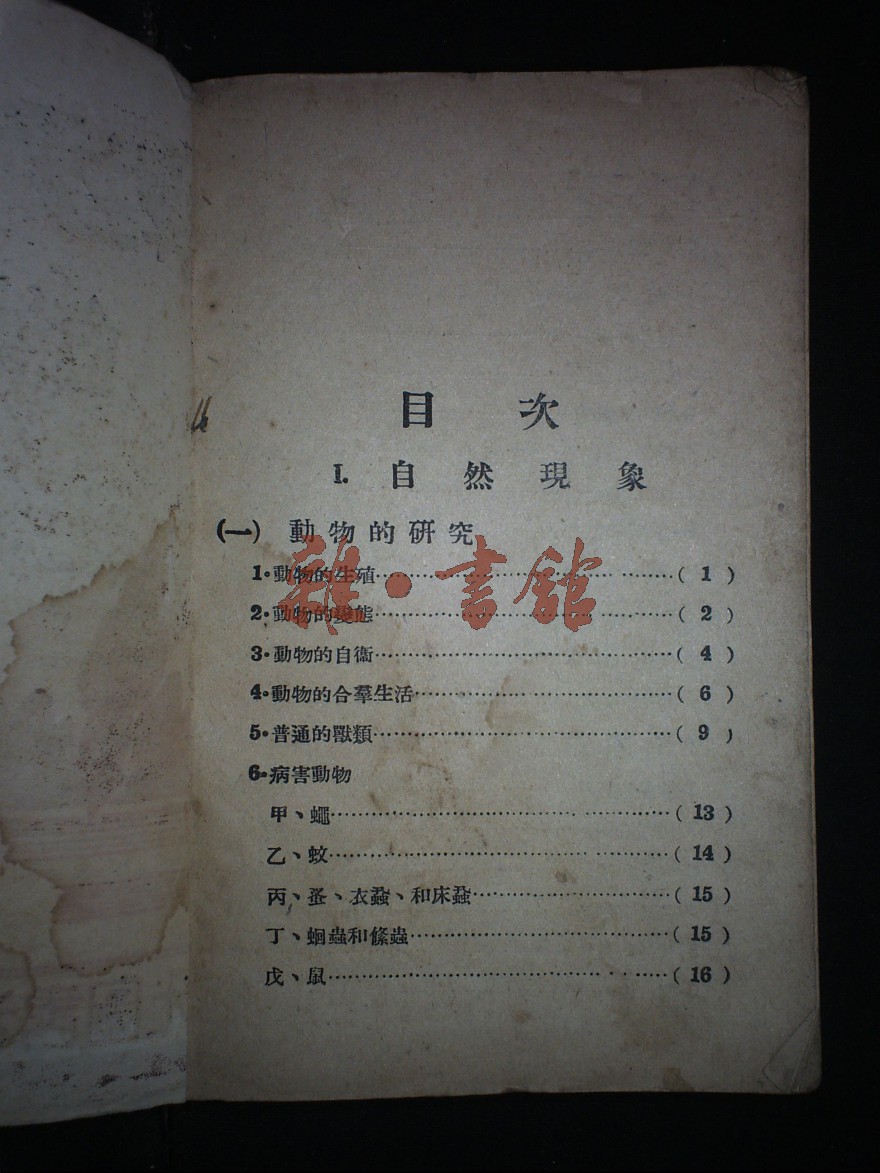 目次
I. 自然現象
(一) 動物的研究
1·動物的生殖……………………………(1)
2·動物的變態……………………………(2)
3·動物的自衞……………………………(4)
4·動物的合羣生活………………………(6)
5·普通的獸類……………………………(9)
6·病害動物
甲、蠅……………………………………(13)
乙、蚊……………………………………(14)
丙、蚤、衣蝨、和床蝨…………………(15)
丁、蛔蟲和絛蟲…………………………(15)
戊、鼠……………………………………(16)
雜·書館